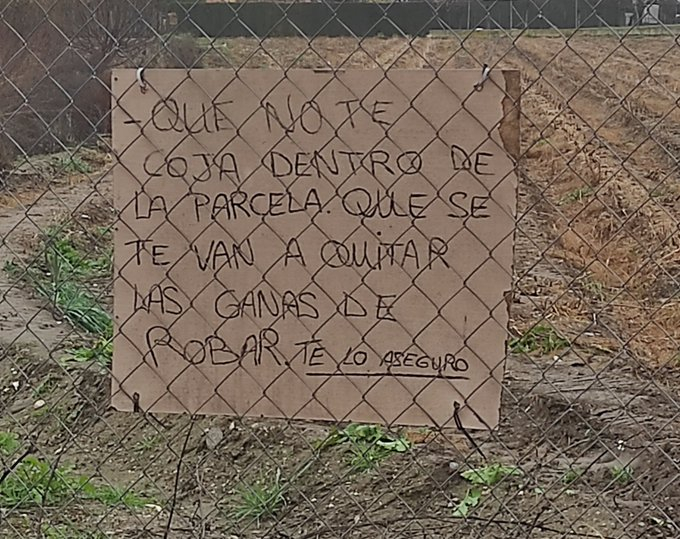 - QUE NO TE
COJA DENTRO DE
LA PARCELA. QUE SE
TE VAN A QUITAR
LAS GANAS DE
ROBAR. TE LO ASEGURO